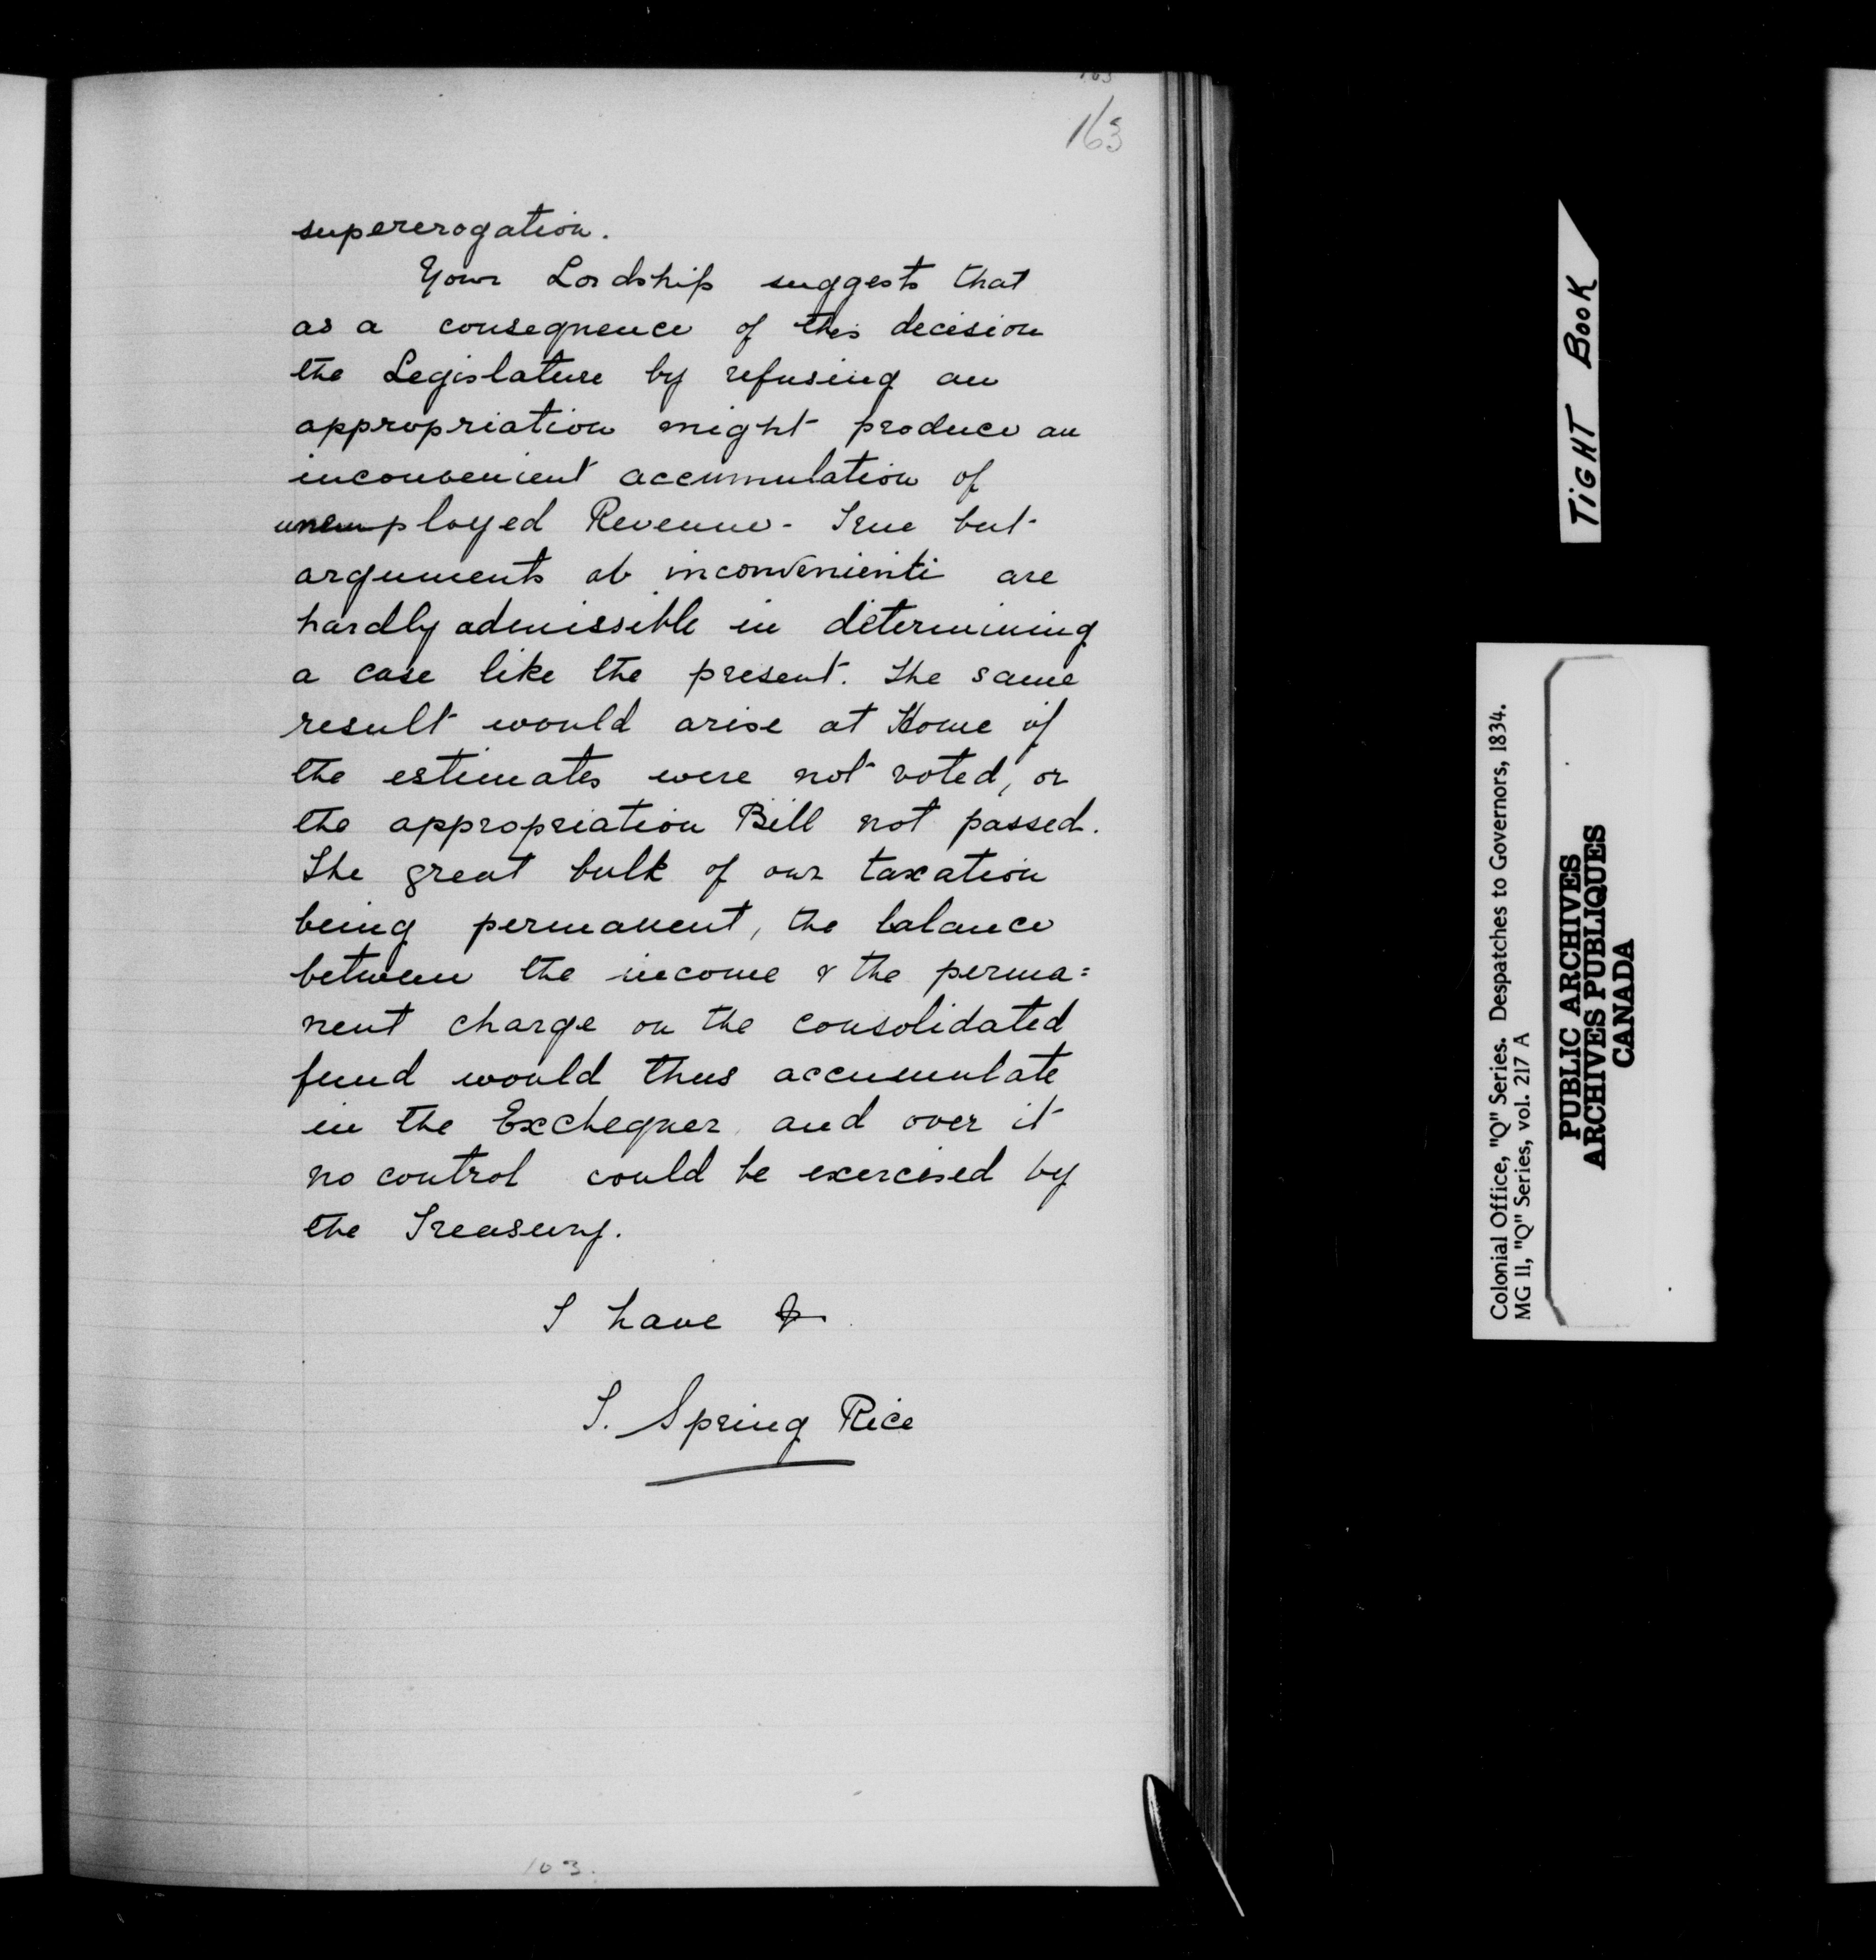 163
163
supererogation.
Your Lordship suggests that
as a consequence of this decision
the Legislature by refusing an
appropriation might produce an
inconvenient accumulation of
unemployed Revenue - True but
arguments ab inconvenienti are
hardly admissible in determining
a case like the present. The same
result would arise at Home if
the estimates were not voted, or
the appropriation Bill not passed.
The great bulk of our taxation
being permanent, the balance
between the income & the perma=
nent charge on the consolidated
fund would thus accumulate
in the Exchequer and over it
no control could be exercised by
the Treasury.
I have &
T. Spring Rice
103.
TIGHT BOOK
Colonial Office, "Q" Series. Despatches to Governors, 1834.
MG 11, "Q" Series, vol. 217 A
PUBLIC ARCHIVES
ARCHIVES PUBLIQUES
CANADA